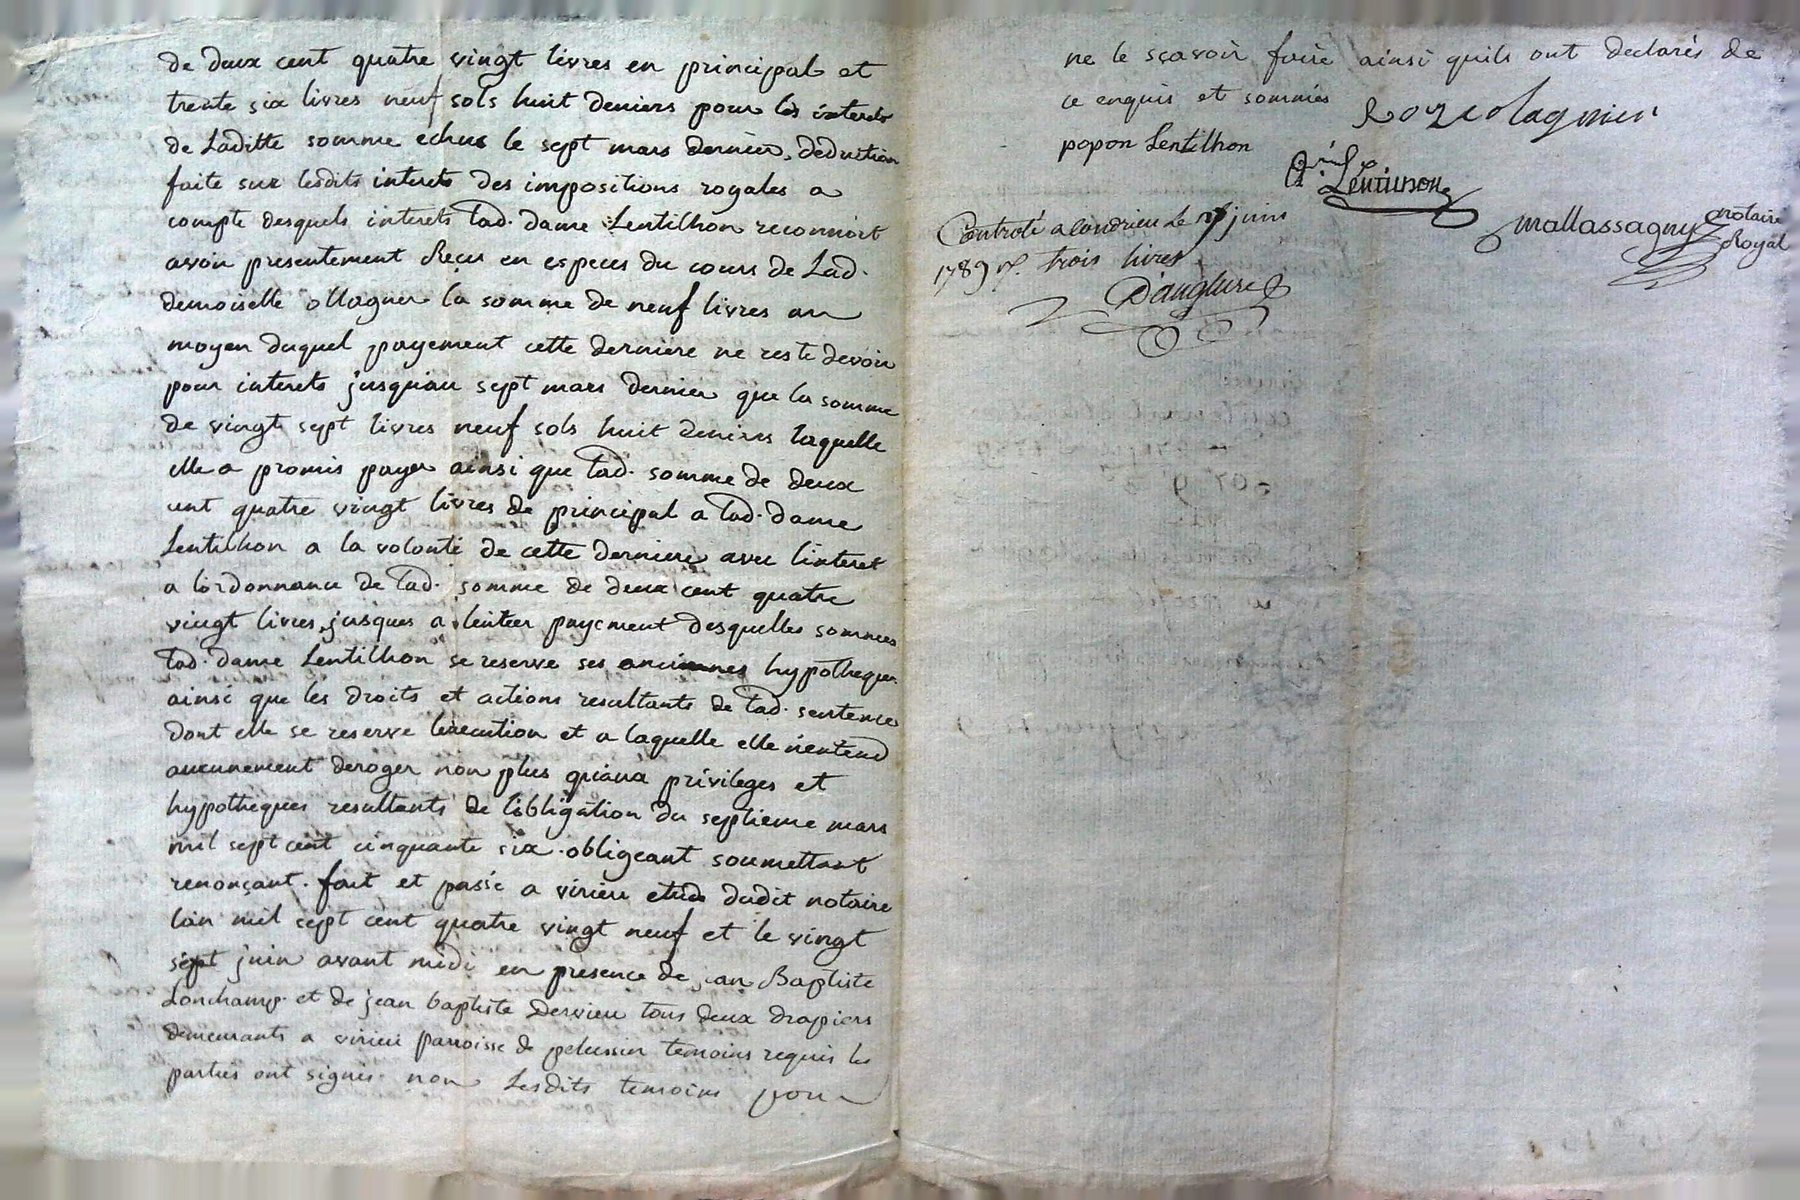 de deux cent quatre vingt livres en principal et
trente six livres neuf sols huit deniers pour les interets
de Laditte somme echus le sept mars dernier, deduction
faite sur lesdits interets des impositions royales a
compte desquels interets Lad. dame Lentilhon reconnoit
avoir presentement Reçu en especes du cours de Lad.
demoiselle ollagner la somme de neuf livres au
moyen duquel payement cette derniere ne reste devoir
pour interets jusqu'au sept mars dernier que la somme
de vingt sept livres neuf sols huit deniers laquelle
elle a promis payer ainsi que Lad. somme de deux
cent quatre vingt livres de principal a Lad. dame
Lentilhon a la volonté de cette derniere avec l'interet
a l'ordonnance de Lad. somme de deux cent quatre
vingt livres, jusques a l'entier payement desquelles sommes
Lad. dame Lentilhon se reserve ses anciennes hypotheques
ainsi que les droits et actions resultants de Lad. sentence
dont elle se reserve l'execution et a laquelle elle n'entend
aucunement deroger non plus qu'aux privileges et
hypotheques resultants de l'obligation du septieme mars
mil sept cent cinquante six. obligeant soumettant
renonçant. fait et passé a virieu etude dudit notaire
l'an mil sept cent quatre vingt neuf et le vingt
sept juin avant midi en presence de jean Baptiste
Lonchamp et de jean baptiste Dervieu tous deux drapiers
demeurants a virieu parroisse de pelussin temoins requis les
parties ont signés non Lesdits temoins pour
ne le sçavoir faire ainsi quils ont declarés de
ce enquis et sommés
popon Lentilhon
Lentilhon
mallassagny notaire
Royal
Controlé a Condrieu Le juin
1789 trois livres
D'anglure